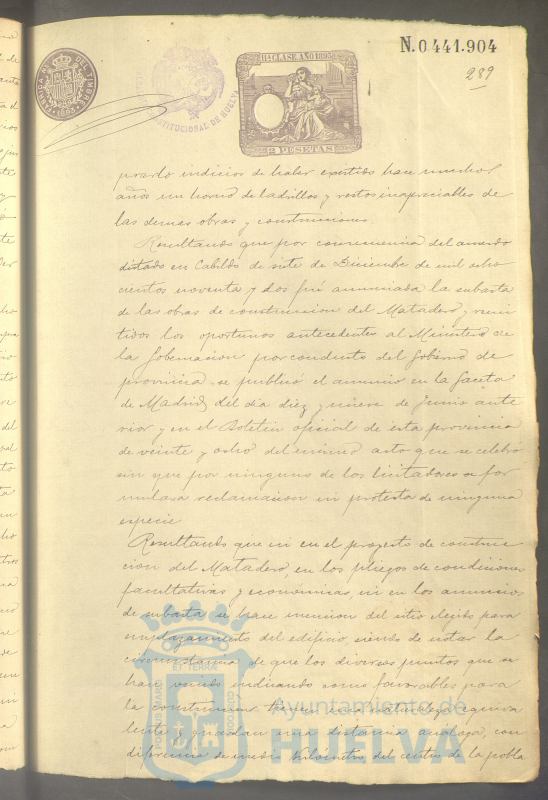 N.0441.904
289
11ª CLASE. AÑO 1893
2 PESETAS
CONSTITUCIONAL DE HUELVA
indicios de haber existido hace muchos
años un horno de ladrillos y restos inapreciables de
las demas obras y construcciones.
Resultando que por consecuencia del acuerdo
dictado en Cabildo de siete de Diciembre de mil ocho
cientos noventa y dos fué anunciada la subasta
de las obras de construccion del Matadero, y remi
tidos los oportunos antecedentes al Ministerio de
la Gobernacion por conducto del Gobierno de
provincia, se publicó el anuncio en la Gaceta
de Madrid del dia diez y nueve de Junio ante
rior y en el Boletin oficial de esta provincia
de veinte y ocho del mismo, acto que se celebró
sin que por ninguno de los licitadores se for
mulara reclamacion ni protesta de ninguna
especie.
Resultando que ni en el proyecto de construc
cion del Matadero, en los pliegos de condiciones
facultativas y economicas, ni en los anuncios
de subasta se hace mencion del sitio elegido para
emplazamiento del edificio siendo de notar la
circunstancia de que los diversos puntos que se
han venido indicando como favorables para
la construccion tienen una naturaleza equiva
lente y guardan una distancia análoga, con
diferencia de medio kilometro del centro de la pobla
PORTUS MARIS
ET TERRAE
CUSTODIA
Ayuntamiento de
HUELVA